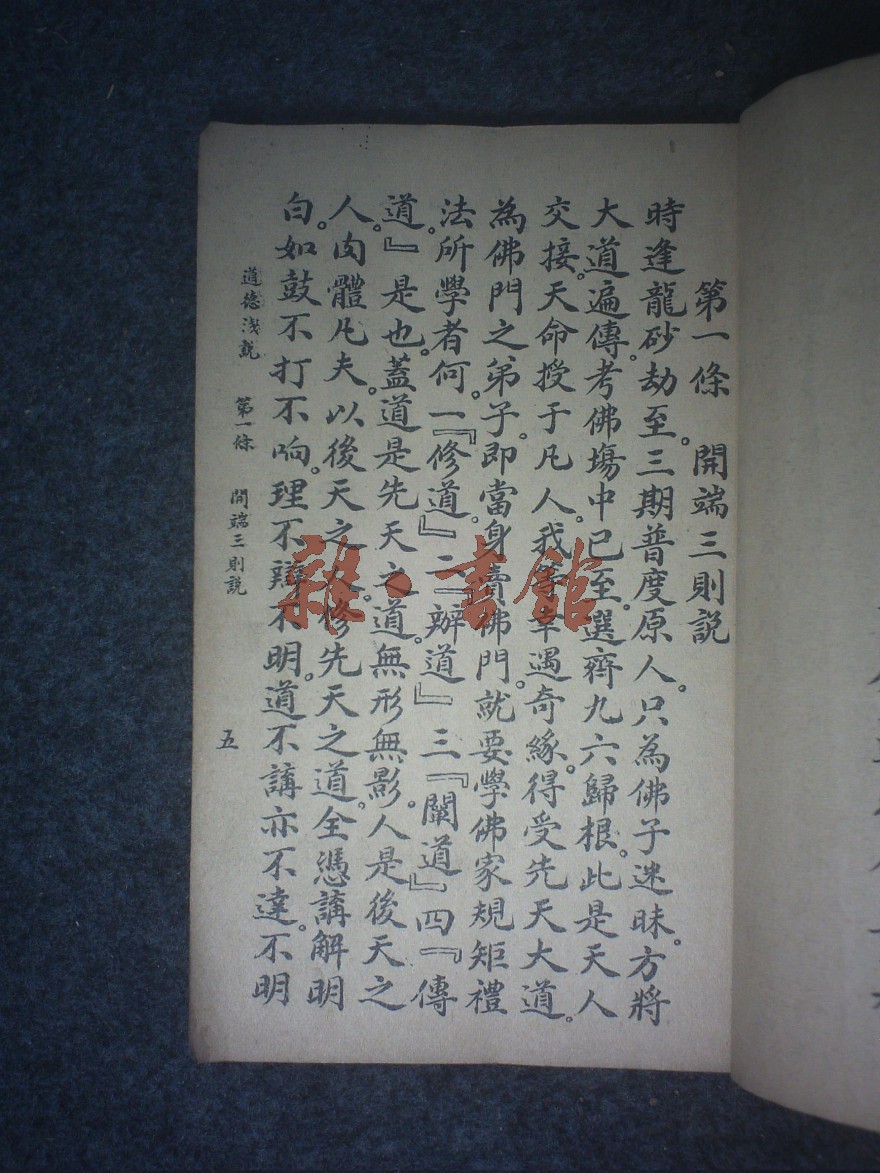 第一條　開端三則説
時逢龍砂劫至。三期普度原人。只為佛子迷昧。方將
大道遍傳。考佛塲中已至。選齊九六歸根。此是天人
交接。天命授于凡人。我等幸遇奇緣。得受先天大道。
為佛門之弟子。即當身賣佛門。就要學佛家規矩禮
法所學者何。一『修道』二『辦道』三『闡道』四『傳
道。』是也。蓋道是先天之道。無形無影。人是後天之
人。肉體凡夫。以後天之人。修先天之道。全憑講解明
白。如鼓不打不响。理不辯不明。道不講亦不達。不明
道德浅説　第一條　開端三則説　五
雜·書館